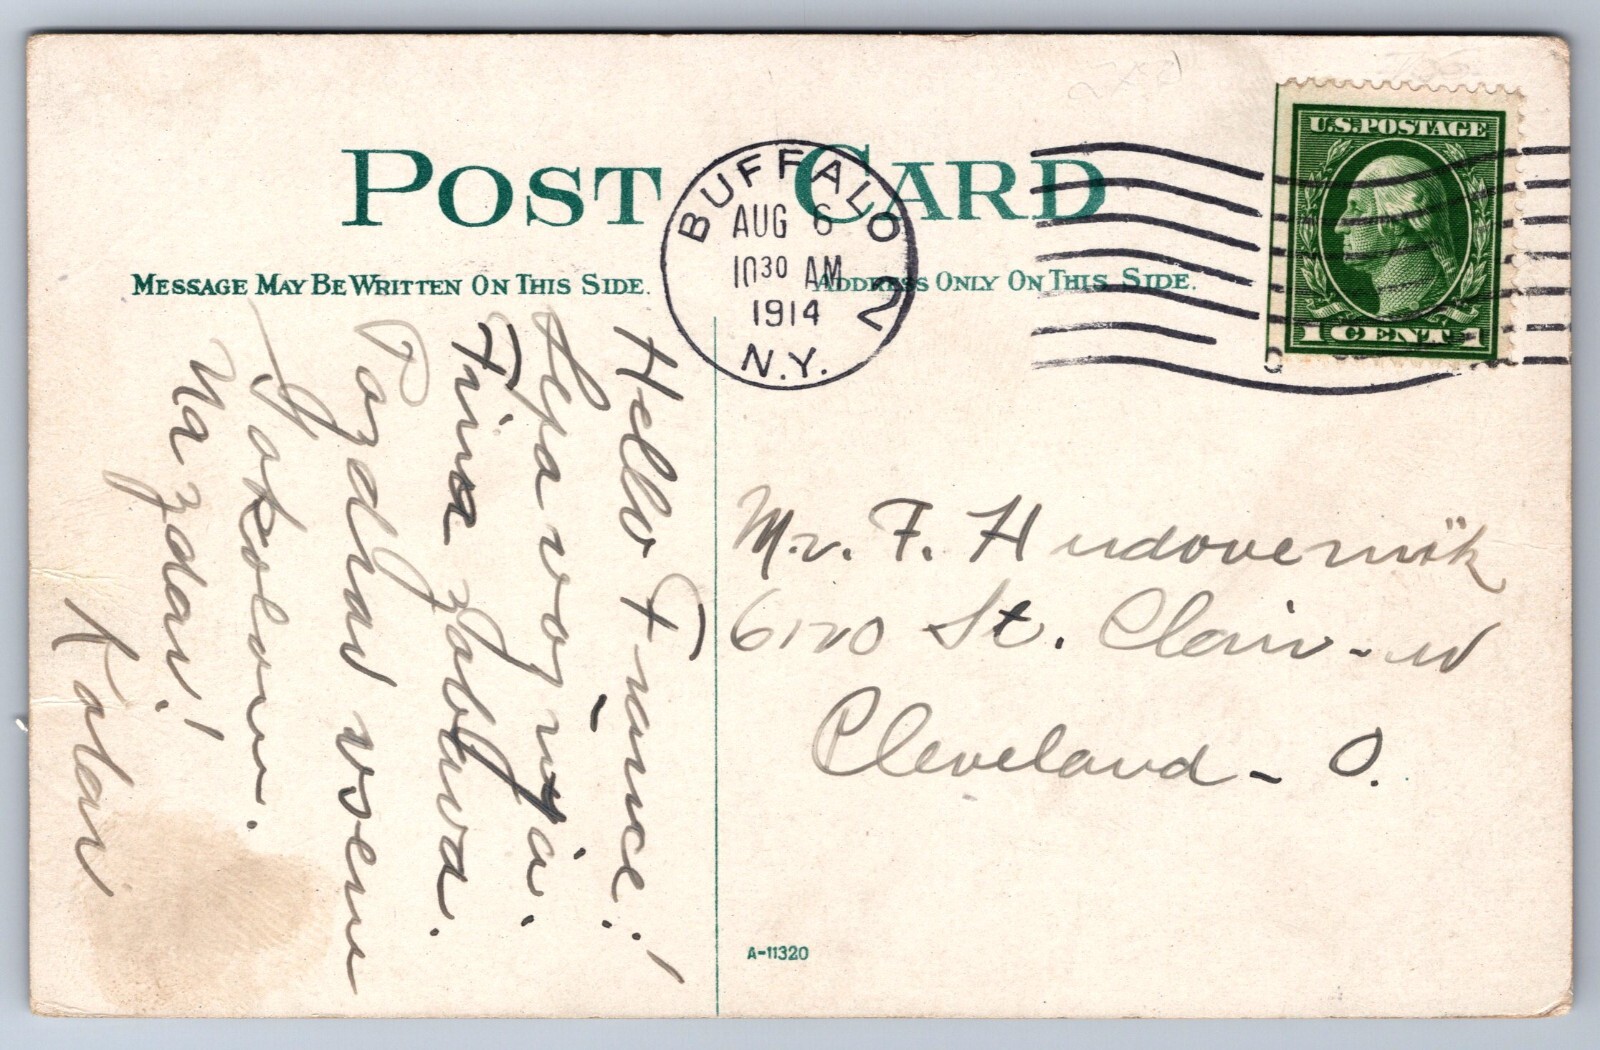 POST CARD
MESSAGE MAY BE WRITTEN ON THIS SIDE.
ADDRESS ONLY ON THIS SIDE.
BUFFALO
AUG 6
10 30 AM
1914
N.Y.
2
U.S. POSTAGE
1 CENT 1
Hello France!
Lepa vožnja.
Fina zabava.
Pozdrav vsem
Sokolom.
Na zdar!
Kolar
Mr. F. Hudovernik
6120 St. Clair -
Cleveland - O.
A-11320